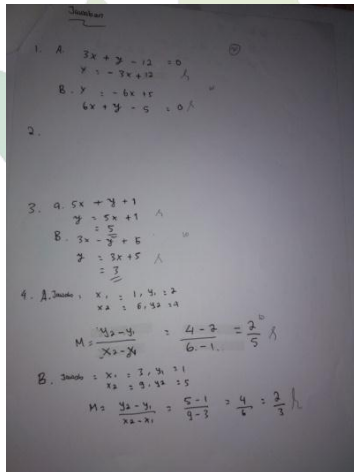 Jawaban
1. A. 3x + y - 12 = 0
y = -3x + 12
B. y = -6x + 5
6x + y - 5 = 0
2.
3. a. 5x + y + 1
y = 5x + 1
= 5
B. 3x - y + 5
y = 3x + 5
= 3
4. A. x1 = 1, y1 = 2
x2 = 6, y2 = 4
M = y2 - y1 / x2 - x1 = 4 - 2 / 6 - 1 = 2 / 5
B. x1 = 3, y1 = 1
x2 = 9, y2 = 5
M = y2 - y1 / x2 - x1 = 5 - 1 / 9 - 3 = 4 / 6 = 2 / 3